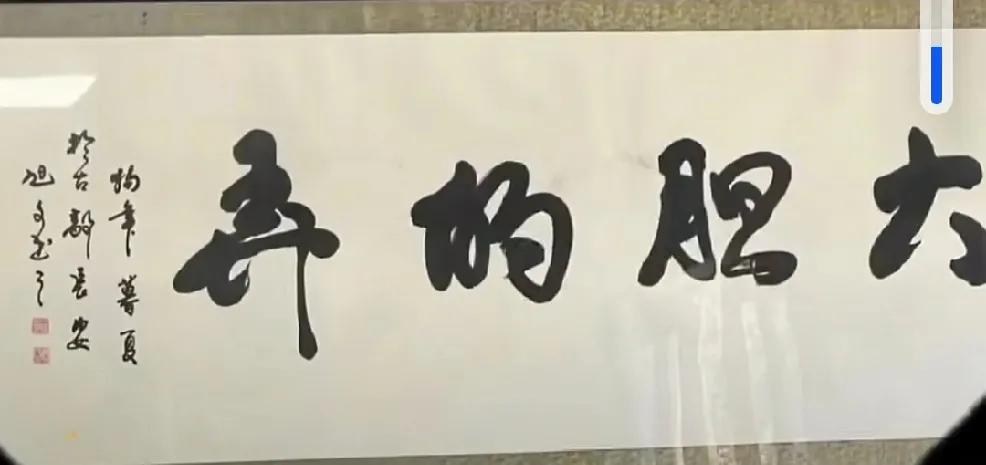 大胆的弄
狗年暮夏
於古都长安
旭